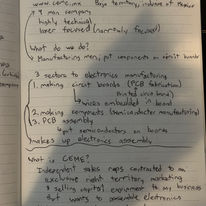 www.ceme.mx Baja territory, indiana of Mexico
4 man company
highly technical
laser focused (narrowly focused)
What do we do?
Manufacturing men, put components on circuit boards
3 sectors to electronics manufacturing
1. making circuit boards (PCB fabrication)
printed circuit board
wires embedded in board
2. making components (semiconductor manufacturing)
3. PCB assembly
put semiconductors on boards
makes up electronics assembly
What is CEME?
Independent sales reps contracted to an
exclusive right territory marketing
& selling capital equipment to any business
that wants to assemble electronics